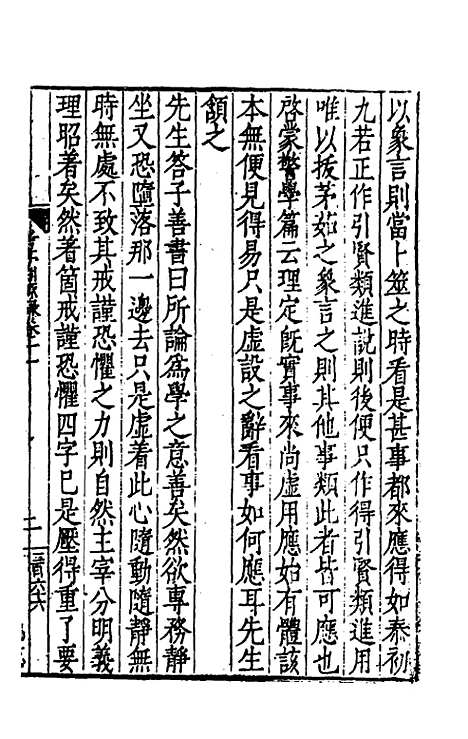 以象言則當卜筮之時看是甚事都來應得如泰初
九若正作引賢類進說則後便只作得引賢類進用
唯以拔茅茹之象言之則其他事類此者皆可應也
啓蒙警學篇云理定旣實事來尚虛用應始有體該
本無便見得易只是虛設之辭看事如何應耳先生
頷之
先生答子善書曰所論為學之意善矣然欲專務靜
坐又恐墮落那一邊去只是虛着此心隨動隨靜無
時無處不致其戒謹恐懼之力則自然主宰分明義
理昭著矣然著箇戒謹恐懼四字已是壓得重了要